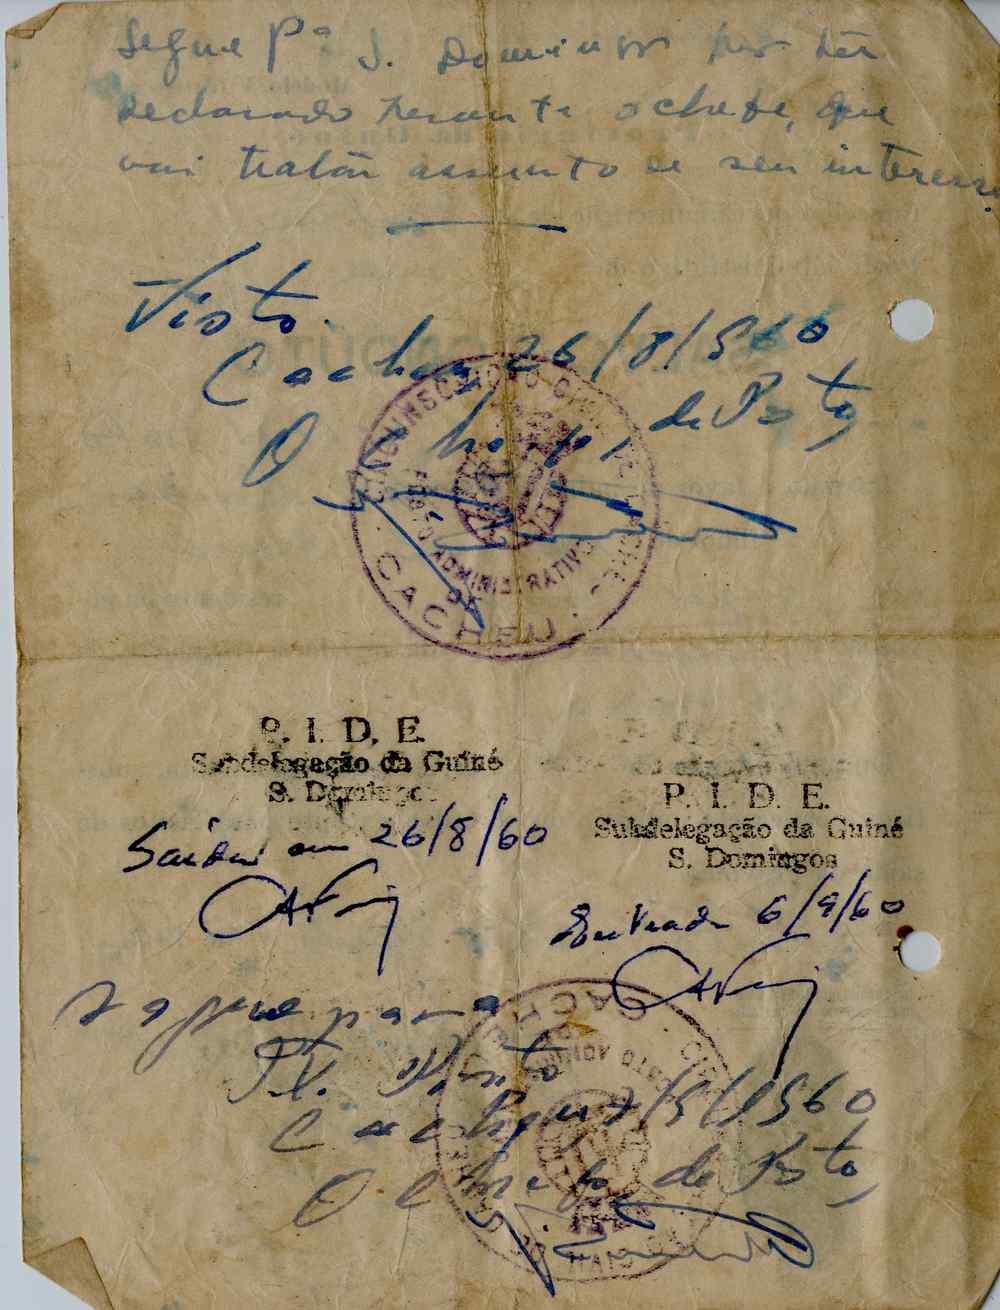 Segue Pª S. Domingos por ter
declarado perante o chefe, que
vai tratar assunto de seu interesse.
Visto.
Cacheu, 26/8/1960
O Chefe, de Posto,
CIRCUNSCRIÇÃO CIVIL
POSTO ADMINISTRATIVO
DE
CACHEU
P. I. D. E.
Subdelegação da Guiné
S. Domingos
Saída em 26/8/60
P. I. D. E.
Subdelegação da Guiné
S. Domingos
Entrada 6/9/60
Segue para
Cacheu 7/9/1960
O Chefe de Posto,
CACHEU